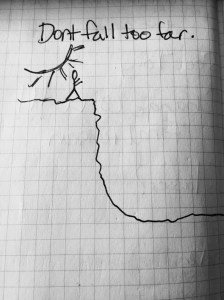 Dont fall too far.